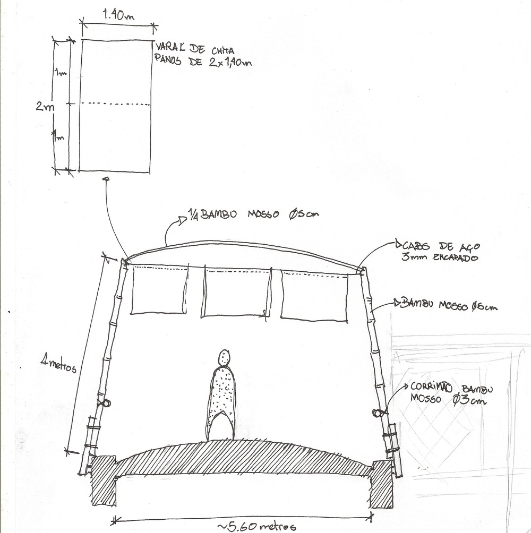 1.40m
VARAL DE CHITA
PANOS DE 2x1,40m
1m
2m
1m
1/4 BAMBU MOSSO Ø5cm
CABOS DE AÇO
3mm ENCAPADO
BAMBU MOSSO Ø6cm
4 metros
CORRIMÃO BAMBU
MOSSO Ø3cm
~5.60 metros